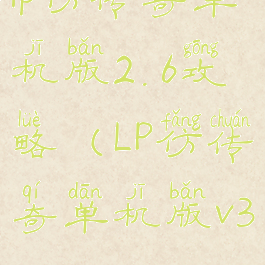 仿传奇单
jī bǎn gōng
机版2.6攻
lüè fǎng chuán
略(LP仿传
qí dān jī bǎn
奇单机版v3